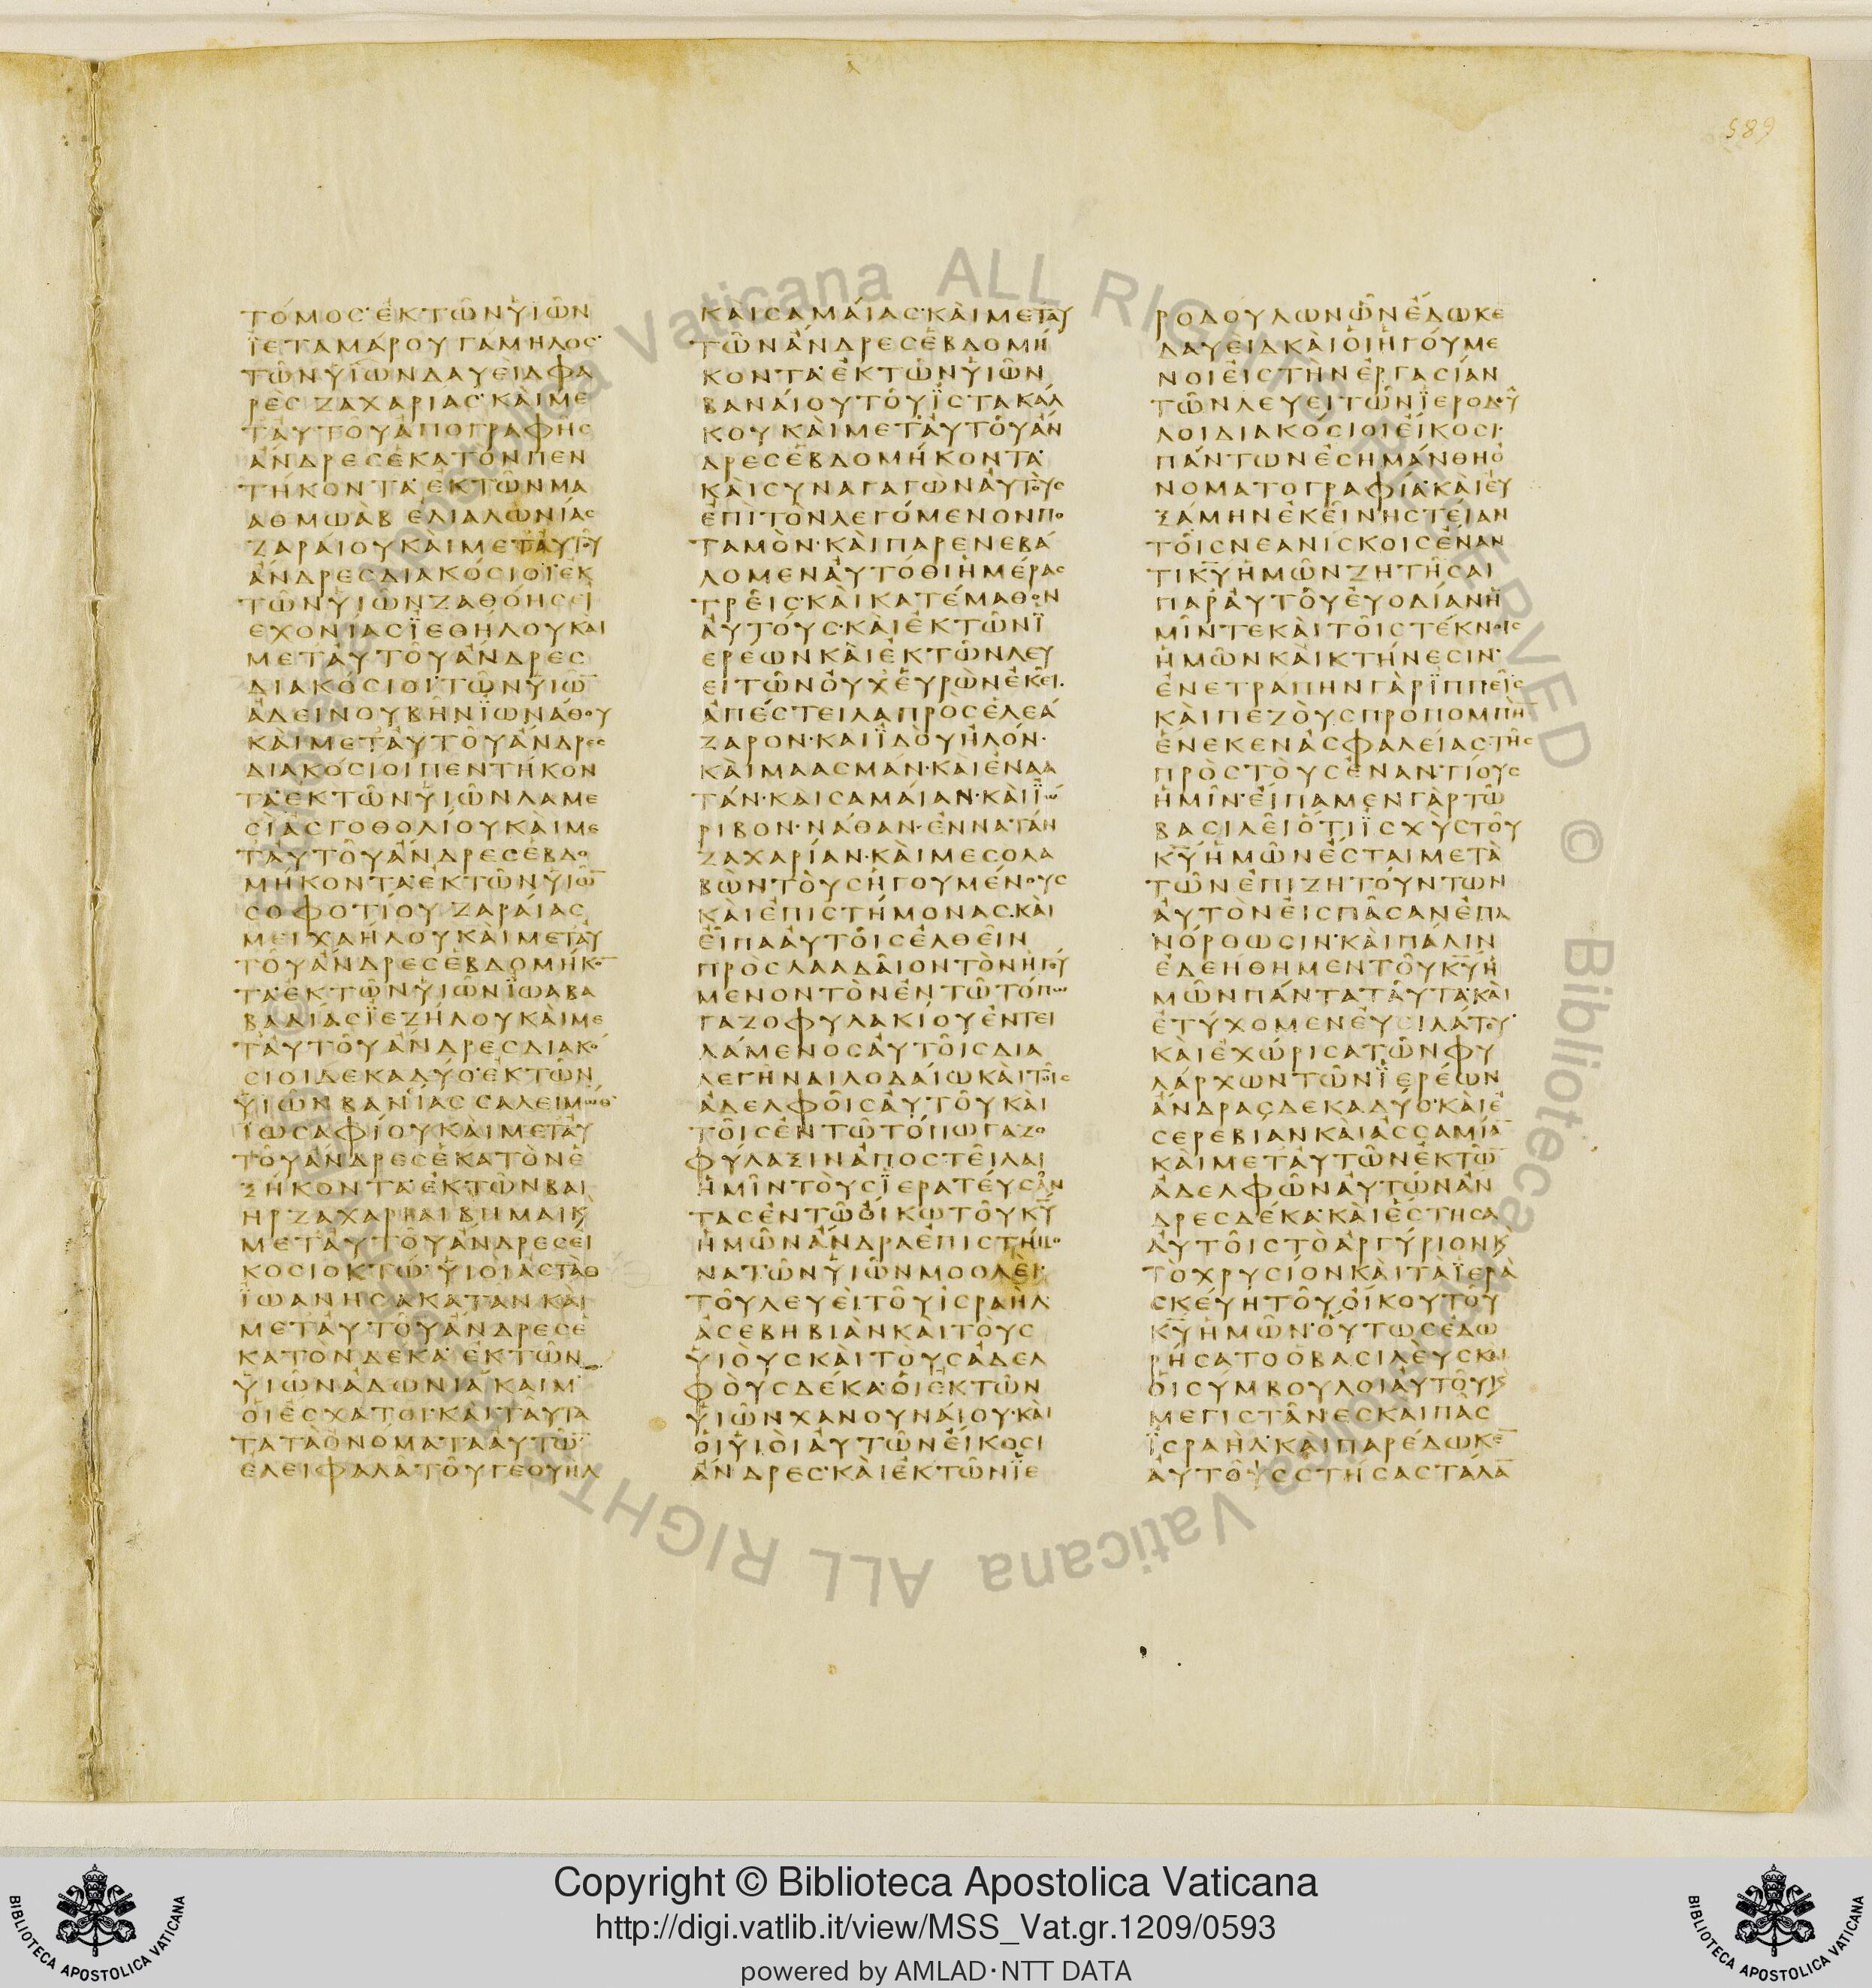 589
ΤΟΜΟΣ ΕΚ ΤΩΝ ΥΙΩΝ
ΙΕΤΑΜΑΡΟΥ ΓΑΜΗΛΟΣ
ΤΩΝ ΥΙΩΝ ΔΑΥΕΙΔ ΦΑ
ΡΕΣ ΖΑΧΑΡΙΑΣ ΚΑΙ ΜΕ
Τ ΑΥΤΟΥ ΑΠΟ ΓΡΑΦΗΣ
ΑΝΔΡΕΣ ΕΚΑΤΟΝ ΠΕΝ
ΤΗΚΟΝΤΑ ΕΚ ΤΩΝ ΜΑ
ΑΘΜΩΑΒ ΕΛΙΑΛΩΝΙΑΣ
ΖΑΡΑΙΟΥ ΚΑΙ ΜΕΤ ΑΥΤΟΥ
ΑΝΔΡΕΣ ΔΙΑΚΟΣΙΟΙ ΕΚ
ΤΩΝ ΥΙΩΝ ΖΑΘΟΗΣ ΕΙ
ΕΧΟΝΙΑΣ ΙΕΘΗΛΟΥ ΚΑΙ
ΜΕΤ ΑΥΤΟΥ ΑΝΔΡΕΣ
ΔΙΑΚΟΣΙΟΙ ΤΩΝ ΥΙΩ̅
ΑΔΕΙΝΟΥ ΒΗΝ ΙΩΝΑΘΟΥ
ΚΑΙ ΜΕΤ ΑΥΤΟΥ ΑΝΔΡΕΣ
ΔΙΑΚΟΣΙΟΙ ΠΕΝΤΗΚΟΝ
ΤΑ ΕΚ ΤΩΝ ΥΙΩΝ ΛΑΜΕ
ΣΙΑΣ ΓΟΘΟΛΙΟΥ ΚΑΙ ΜΕ
Τ ΑΥΤΟΥ ΑΝΔΡΕΣ ΕΒΔΟ
ΜΗΚΟΝΤΑ ΕΚ ΤΩΝ ΥΙΩ̅
ΣΟΦΟΤΙΟΥ ΖΑΡΑΙΑΣ
ΜΕΙΧΑΗΛΟΥ ΚΑΙ ΜΕΤ ΑΥ
ΤΟΥ ΑΝΔΡΕΣ ΕΒΔΟΜΗΚΟ̅
ΤΑ ΕΚ ΤΩΝ ΥΙΩΝ ΙΩΑΒ ΑΒΑ
ΒΑΔΙΑΣ ΙΕΖΗΛΟΥ ΚΑΙ ΜΕ
Τ ΑΥΤΟΥ ΑΝΔΡΕΣ ΔΙΑΚΟ
ΣΙΟΙ ΔΕΚΑ ΔΥΟ ΕΚ ΤΩΝ
ΥΙΩΝ ΒΑΝΙΑΣ ΣΑΛΕΙΜΩΘ
ΙΩΣΑΦΙΟΥ ΚΑΙ ΜΕΤ ΑΥ
ΤΟΥ ΑΝΔΡΕΣ ΕΚΑΤΟΝ Ε
ΞΗΚΟΝΤΑ ΕΚ ΤΩΝ ΒΑΙ
ΗΡ ΖΑΧΑΡΙΑΙ ΒΗΜΑΙ Κ
ΜΕΤ ΑΥΤΟΥ ΑΝΔΡΕΣ ΕΙ
ΚΟΣΙ ΟΚΤΩ ΥΙΟΙ ΑΣΤΑΘ
ΙΩΑΝΗΣ ΑΚΑΤΑΝ ΚΑΙ
ΜΕΤ ΑΥΤΟΥ ΑΝΔΡΕΣ Ε
ΚΑΤΟΝ ΔΕΚΑ ΕΚ ΤΩΝ
ΥΙΩΝ ΑΔΩΝΙΑΚΑΙΜ
ΟΙ ΕΣΧΑΤΟΙ ΚΑΙ ΤΑΥΤΑ
ΤΑ ΤΑ ΟΝΟΜΑΤΑ ΑΥΤΩ̅
ΕΛΕΙΦΑΛΑ ΤΟΥ ΓΕΟΥΗΛ
ΚΑΙ ΣΑΜΑΙΑΣ ΚΑΙ ΜΕΤ ΑΥ
ΤΩΝ ΑΝΔΡΕΣ ΕΒΔΟΜΗ
ΚΟΝΤΑ ΕΚ ΤΩΝ ΥΙΩΝ
ΒΑΝΑΙΟΥ ΤΟΥ ΙΣΤΑΚΑΛ
ΚΟΥ ΚΑΙ ΜΕΤ ΑΥΤΟΥ ΑΝ
ΔΡΕΣ ΕΒΔΟΜΗΚΟΝΤΑ
ΚΑΙ ΣΥΝΑΓΑΓΩΝ ΑΥΤΟΥΣ
ΕΠΙ ΤΟΝ ΛΕΓΟΜΕΝΟΝ ΠΟ
ΤΑΜΟΝ ΚΑΙ ΠΑΡΕΝΕΒΑ
ΛΟΜΕΝ ΑΥΤΟΘΙ ΗΜΕΡΑΣ
ΤΡΕΙΣ ΚΑΙ ΚΑΤΕΜΑΘΟΝ
ΑΥΤΟΥΣ ΚΑΙ ΕΚ ΤΩΝ Ι
ΕΡΕΩΝ ΚΑΙ ΕΚ ΤΩΝ ΛΕΥ
ΕΙΤΩΝ ΟΥΧ ΕΥΡΩΝ ΕΚΕΙ
ΑΠΕΣΤΕΙΛΑ ΠΡΟΣ ΕΛΕΑ
ΖΑΡΟΝ ΚΑΙ ΙΔΟΥΗΛΟΝ
ΚΑΙ ΜΑΑΣΜΑΝ ΚΑΙ ΕΝΑΑ
ΤΑΝ ΚΑΙ ΣΑΜΑΙΑΝ ΚΑΙ ΙΩ
ΡΙΒΟΝ ΝΑΘΑΝ ΕΝΝΑΤΑΝ
ΖΑΧΑΡΙΑΝ ΚΑΙ ΜΕΣΟΛΑ
ΒΩΝ ΤΟΥΣ ΗΓΟΥΜΕΝΟΥΣ
ΚΑΙ ΕΠΙΣΤΗΜΟΝΑΣ ΚΑΙ
ΕΙΠΑ ΑΥΤΟΙΣ ΕΛΘΕΙΝ
ΠΡΟΣ ΛΑΑΔΑΙΟΝ ΤΟΝ ΗΓΟΥ
ΜΕΝΟΝ ΤΟΝ ΕΝ ΤΩ ΤΟΠΩ
ΓΑΖΟΦΥΛΑΚΙΟΥ ΕΝΤΕΙ
ΛΑΜΕΝΟΣ ΑΥΤΟΙΣ ΔΙΑ
ΛΕΓΗΝΑΙ ΛΟΔΑΙΩ ΚΑΙ ΤΟΙΣ
ΑΔΕΛΦΟΙΣ ΑΥΤΟΥ ΚΑΙ
ΤΟΙΣ ΕΝ ΤΩ ΤΟΠΩ ΓΑΖΟ
ΦΥΛΑΞΙΝ ΑΠΟΣΤΕΙΛΑΙ
ΗΜΙΝ ΤΟΥΣ ΙΕΡΑΤΕΥΣΑΝ
ΤΑΣ ΕΝ ΤΩ ΟΙΚΩ ΤΟΥ Κ̅Υ̅
ΗΜΩΝ ΑΝΔΡΑ ΕΠΙΣΤΗΜΟ
ΝΑ ΤΩΝ ΥΙΩΝ ΜΟΟΛΕΙ
ΤΟΥ ΛΕΥΕΙ ΤΟΥ ΙΣΡΑΗΛ
ΑΣΕΒΗΒΙΑΝ ΚΑΙ ΤΟΥΣ
ΥΙΟΥΣ ΚΑΙ ΤΟΥΣ ΑΔΕΛ
ΦΟΥΣ ΔΕΚΑ ΟΙ ΕΚ ΤΩΝ
ΥΙΩΝ ΧΑΝΟΥΝΑΙΟΥ ΚΑΙ
ΟΙ ΥΙΟΙ ΑΥΤΩΝ ΕΙΚΟΣΙ
ΑΝΔΡΕΣ ΚΑΙ ΕΚ ΤΩΝ ΙΕ
ΡΟΔΟΥΛΩΝ ΩΝ ΕΔΩΚΕ
ΔΑΥΕΙΔ ΚΑΙ ΟΙ ΗΓΟΥΜΕ
ΝΟΙ ΕΙΣ ΤΗΝ ΕΡΓΑΣΙΑΝ
ΤΩΝ ΛΕΥΕΙΤΩΝ ΙΕΡΟΔΟΥ
ΛΟΙ ΔΙΑΚΟΣΙΟΙ ΕΙΚΟΣΙ
ΠΑΝΤΩΝ ΕΣΗΜΑΝΘΗ Ο
ΝΟΜΑΤΟΓΡΑΦΙΑ ΚΑΙ ΕΥ
ΞΑΜΗΝ ΕΚΕΙ ΝΗΣΤΕΙΑΝ
ΤΟΙΣ ΝΕΑΝΙΣΚΟΙΣ ΕΝΑΝ
ΤΙ Κ̅Υ̅ ΗΜΩΝ ΖΗΤΗΣΑΙ
ΠΑΡ ΑΥΤΟΥ ΕΥΟΔΙΑΝ Η
ΜΙΝ ΤΕ ΚΑΙ ΤΟΙΣ ΤΕΚΝΟΙΣ
ΗΜΩΝ ΚΑΙ ΚΤΗΝΕΣΙΝ
ΕΝΕΤΡΑΠΗΝ ΓΑΡ ΙΠΠΕΙΣ
ΚΑΙ ΠΕΖΟΥΣ ΠΡΟΠΟΜΠΗ̅
ΕΝΕΚΕΝ ΑΣΦΑΛΕΙΑΣ ΤΗΣ
ΠΡΟΣ ΤΟΥΣ ΕΝΑΝΤΙΟΥΣ
ΗΜΙΝ ΕΙΠΑΜΕΝ ΓΑΡ ΤΩ
ΒΑΣΙΛΕΙ ΟΤΙ ΙΣΧΥΣ ΤΟΥ
Κ̅Υ̅ ΗΜΩΝ ΕΣΤΑΙ ΜΕΤΑ
ΤΩΝ ΕΠΙΖΗΤΟΥΝΤΩΝ
ΑΥΤΟΝ ΕΙΣ ΠΑΣΑΝ ΕΠΑ
ΝΟΡΘΩΣΙΝ ΚΑΙ ΠΑΛΙΝ
ΕΔΕΗΘΗΜΕΝ ΤΟΥ Κ̅Υ̅ Η
ΜΩΝ ΠΑΝΤΑ ΤΑΥΤΑ ΚΑΙ
ΕΤΥΧΟΜΕΝ ΕΥΙΛΑΤΟΥ
ΚΑΙ ΕΧΩΡΙΣΑ ΤΩΝ ΦΥ
ΛΑΡΧΩΝ ΤΩΝ ΙΕΡΕΩΝ
ΑΝΔΡΑΣ ΔΕΚΑ ΔΥΟ ΚΑΙ Ε
ΣΕΡΕΒΙΑΝ ΚΑΙ ΑΣΣΑΜΙΑ̅
ΚΑΙ ΜΕΤ ΑΥΤΩΝ ΕΚ ΤΩ̅
ΑΔΕΛΦΩΝ ΑΥΤΩΝ ΑΝ
ΔΡΕΣ ΔΕΚΑ ΚΑΙ ΕΣΤΗΣΑ
ΑΥΤΟΙΣ ΤΟ ΑΡΓΥΡΙΟΝ Κ
ΤΟ ΧΡΥΣΙΟΝ ΚΑΙ ΤΑ ΙΕΡΑ
ΣΚΕΥΗ ΤΟΥ ΟΙΚΟΥ ΤΟΥ
Κ̅Υ̅ ΗΜΩΝ ΟΥΤΩΣ ΕΔΩ
ΡΗΣΑΤΟ Ο ΒΑΣΙΛΕΥΣ ΚΑΙ
ΟΙ ΣΥΜΒΟΥΛΟΙ ΑΥΤΟΥ Κ
ΜΕΓΙΣΤΑΝΕΣ ΚΑΙ ΠΑΣ
ΙΣΡΑΗΛ ΚΑΙ ΠΑΡΕΔΩΚΕ̅
ΑΥΤΟΥΣ ΣΤΗΣΑΣ ΤΑΛΑ̅
Vaticana ALL RIGHTS RESERVED © Biblioteca Vaticana ALL RIGHTS
Copyright © Biblioteca Apostolica Vaticana
http://digi.vatlib.it/view/MSS_Vat.gr.1209/0593
powered by AMLAD·NTT DATA
BIBLIOTECA APOSTOLICA VATICANA
BIBLIOTECA APOSTOLICA VATICANA